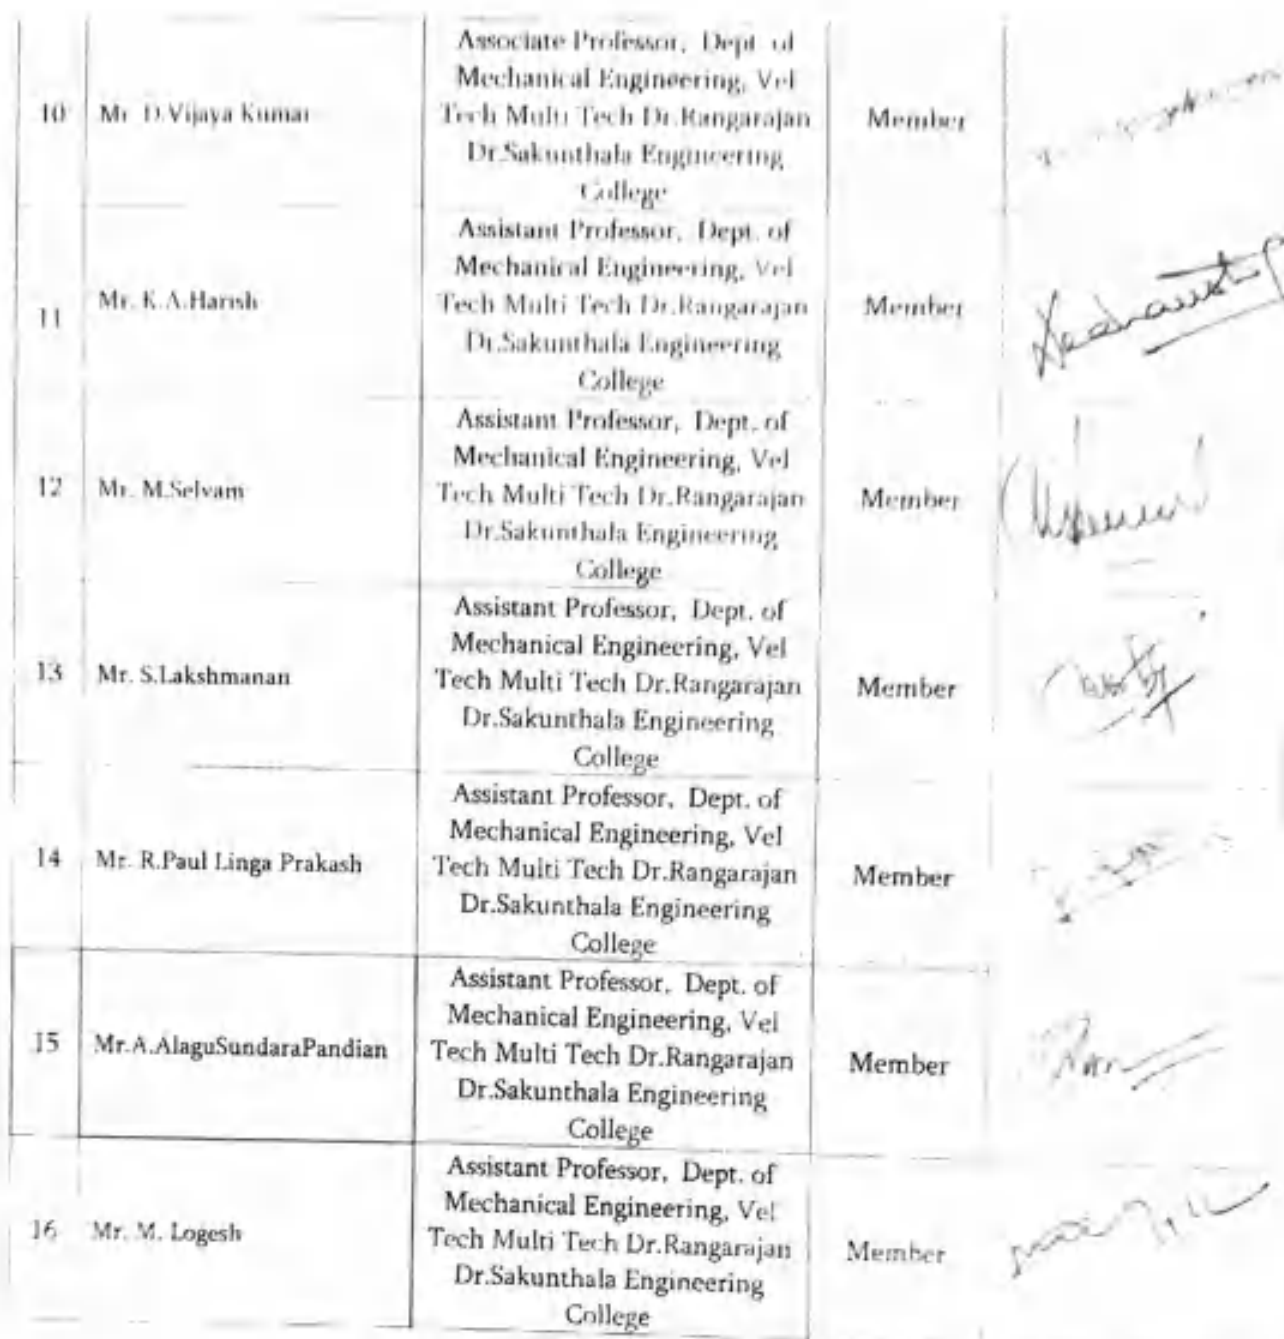 10
Mr. D.Vijaya Kumar
Associate Professor, Dept. of
Mechanical Engineering, Vel
Tech Multi Tech Dr.Rangarajan
Dr.Sakunthala Engineering
College
Member
11
Mr. K.A.Harish
Assistant Professor, Dept. of
Mechanical Engineering, Vel
Tech Multi Tech Dr.Rangarajan
Dr.Sakunthala Engineering
College
Member
12
Mr. M.Selvam
Assistant Professor, Dept. of
Mechanical Engineering, Vel
Tech Multi Tech Dr.Rangarajan
Dr.Sakunthala Engineering
College
Member
13
Mr. S.Lakshmanan
Assistant Professor, Dept. of
Mechanical Engineering, Vel
Tech Multi Tech Dr.Rangarajan
Dr.Sakunthala Engineering
College
Member
14
Mr. R.Paul Linga Prakash
Assistant Professor, Dept. of
Mechanical Engineering, Vel
Tech Multi Tech Dr.Rangarajan
Dr.Sakunthala Engineering
College
Member
15
Mr.A.AlaguSundaraPandian
Assistant Professor, Dept. of
Mechanical Engineering, Vel
Tech Multi Tech Dr.Rangarajan
Dr.Sakunthala Engineering
College
Member
16
Mr. M. Logesh
Assistant Professor, Dept. of
Mechanical Engineering, Vel
Tech Multi Tech Dr.Rangarajan
Dr.Sakunthala Engineering
College
Member